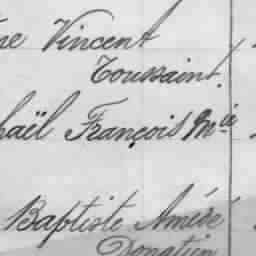 ne Vincent
Toussaint.
haël François Mie
Baptiste Amédé
Donatien